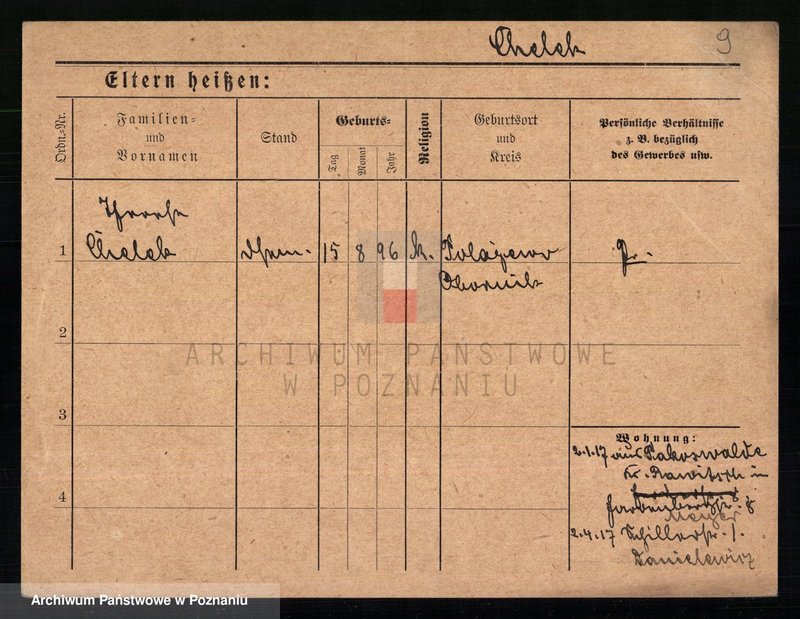 Chelek 9
Eltern heißen:
Ordn.-Nr.
Familien-
und
Vornamen
Stand
Geburts-
Tag
Monat
Jahr
Religion
Geburtsort
und
Kreis
Persönliche Verhältnisse
z. B. bezüglich
des Gewerbes usw.
1
Chelek
15 8 96 k.
Polajewo
Pr.
Obornik
2
ARCHIWUM PAŃSTWOWE
W POZNANIU
3
Wohnung:
2.1.17 aus Pakoswalde
Kr. Rawitsch in
4
8
Meyer
2.4.17 Schillerstr. 1.
Danielewicz
Archiwum Państwowe w Poznaniu